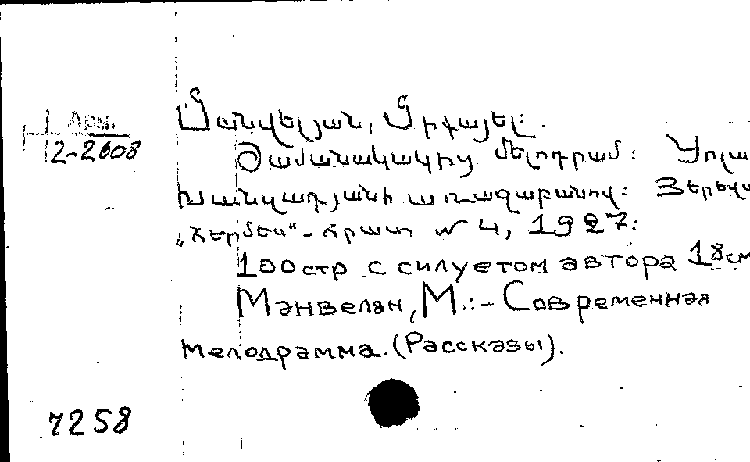 Арм.
2-2608
Մանվելյան, Միքայել:
Ժամանակակից մելոդրամ:
առաջաբանով: Յերևա
„Հերմես“ - հրատ № 4, 1927:
100стр с силуетом автора 18см
Манвелян, М.:- Современная
мелодрамма. (Рассказы).
7258